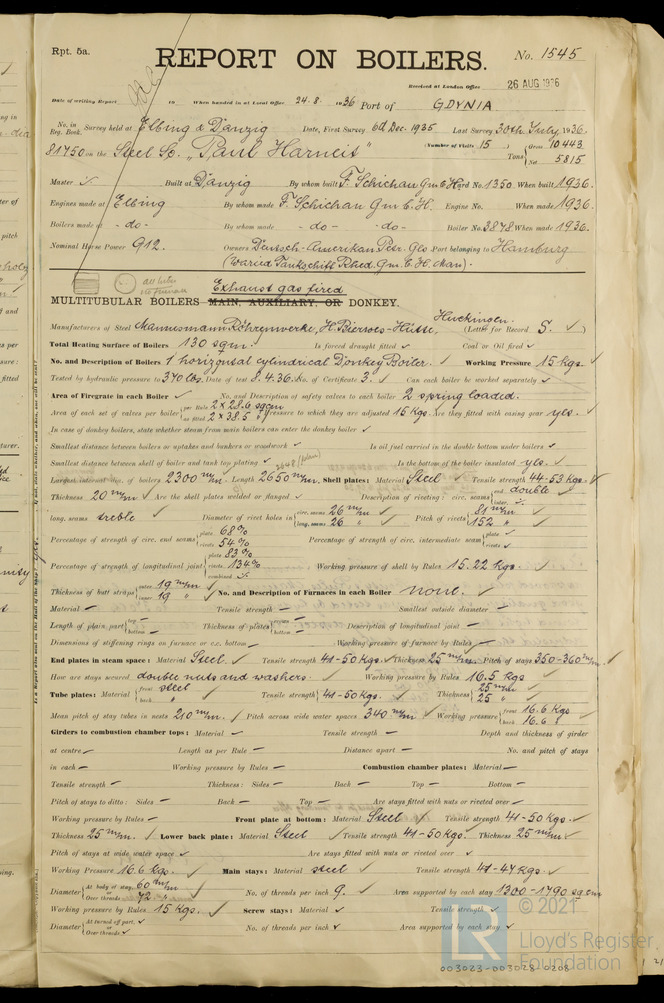 Rpt. 5a.
REPORT ON BOILERS.
No. 1545
Received at London Office 26 AUG 1936
Date of writing Report 19 When handed in at Local Office 24.8. 1936 Port of GDYNIA
No. in Reg. Book. Survey held at Elbing & Danzig Date, First Survey 6th Dec. 1935 Last Survey 30th July 1936.
81750 on the Steel Sc. "Paul Harneit" (Number of Visits 15) Tons Gross 10443 Net 5815
Master Built at Danzig By whom built F. Schichau Gm.b.H. Yard No. 1350. When built 1936.
Engines made at Elbing By whom made F. Schichau Gm.b.H. Engine No. When made 1936.
Boilers made at -do- By whom made -do- -do- Boiler No. 3878 When made 1936.
Nominal Horse Power 912. Owners Deutsch-Amerikan Petr. Ges. Port belonging to Hamburg
(Waried Tankschiff Rhed. Gm.b.H. Man.)
Exhaust gas fired
MULTITUBULAR BOILERS MAIN, AUXILIARY, OR DONKEY.
Manufacturers of Steel Mannesmann Röhrenwerke, H. Bierwes-Hütte, Huckingen. (Letter for Record S. ✓)
Total Heating Surface of Boilers 130 sqm. Is forced draught fitted ✓ Coal or Oil fired ✓
No. and Description of Boilers 1 horizontal cylindrical Donkey Boiler. ✓ Working Pressure 15 kgs.
Tested by hydraulic pressure to 370 lbs. Date of test 3.4.36. No. of Certificate 3. Can each boiler be worked separately ✓
Area of Firegrate in each Boiler ✓ No. and Description of safety valves to each boiler 2 spring loaded.
Area of each set of valves per boiler per Rule 2 × 28.6 sqcm as fitted 2 × 38.5 " Pressure to which they are adjusted 15 Kgs. Are they fitted with easing gear yes. ✓
In case of donkey boilers, state whether steam from main boilers can enter the donkey boiler ✓
Smallest distance between boilers or uptakes and bunkers or woodwork ✓ Is oil fuel carried in the double bottom under boilers ✓
Smallest distance between shell of boiler and tank top plating ✓ Is the bottom of the boiler insulated yes. ✓
Largest internal dia. of boilers 2300 m/m. Length 2650 m/m. Shell plates: Material Steel ✓ Tensile strength 44-53 Kgs. ✓
Thickness 20 m/m ✓ Are the shell plates welded or flanged ✓ Description of riveting: circ. seams end double ✓ inter.
long. seams treble ✓ Diameter of rivet holes in circ. seams 26 m/m ✓ long. seams 26 " ✓ Pitch of rivets 81 m/m ✓ 152 " ✓
Percentage of strength of circ. end seams plate 68% rivets 54% Percentage of strength of circ. intermediate seam plate ✓ rivets ✓
Percentage of strength of longitudinal joint plate 83% rivets 134% combined Working pressure of shell by Rules 15.22 Kgs. ✓
Thickness of butt straps outer 19 m/m ✓ inner 19 " ✓ No. and Description of Furnaces in each Boiler none. ✓
Material – Tensile strength – Smallest outside diameter –
Length of plain part top – bottom – Thickness of plates crown – bottom – Description of longitudinal joint –
Dimensions of stiffening rings on furnace or c.c. bottom – Working pressure of furnace by Rules –
End plates in steam space: Material Steel. ✓ Tensile strength 41-50 Kgs. ✓ Thickness 25 m/m. Pitch of stays 350-360 m/m. ✓
How are stays secured double nuts and washers. ✓ Working pressure by Rules 16.5 Kgs ✓
Tube plates: Material front steel back " ✓ Tensile strength 41-50 Kgs. ✓ Thickness 25 m/m ✓ 25 " ✓
Mean pitch of stay tubes in nests 210 m/m. ✓ Pitch across wide water spaces 340 m/m ✓ Working pressure front 16.6 Kgs. ✓ back 16.6 " ✓
Girders to combustion chamber tops: Material – Tensile strength – Depth and thickness of girder
at centre – Length as per Rule – Distance apart – No. and pitch of stays
in each – Working pressure by Rules – Combustion chamber plates: Material –
Tensile strength – Thickness: Sides – Back – Top – Bottom –
Pitch of stays to ditto: Sides – Back – Top – Are stays fitted with nuts or riveted over –
Working pressure by Rules – Front plate at bottom: Material Steel ✓ Tensile strength 41-50 Kgs. ✓
Thickness 25 m/m. ✓ Lower back plate: Material Steel ✓ Tensile strength 41-50 Kgs. ✓ Thickness 25 m/m ✓
Pitch of stays at wide water space ✓ Are stays fitted with nuts or riveted over ✓
Working Pressure 16.6 Kgs. ✓ Main stays: Material steel ✓ Tensile strength 41-47 Kgs. ✓
Diameter At body of stay, 60 m/m or Over threads 72 " No. of threads per inch 9. ✓ Area supported by each stay 1300-1790 sqcm
Working pressure by Rules 15 Kgs. ✓ Screw stays: Material ✓ Tensile strength ✓
Diameter At turned off part, ✓ or Over threads ✓ No. of threads per inch ✓ Area supported by each stay ✓
© 2021
LR
Lloyd's Register
Foundation
003023-003028-0208